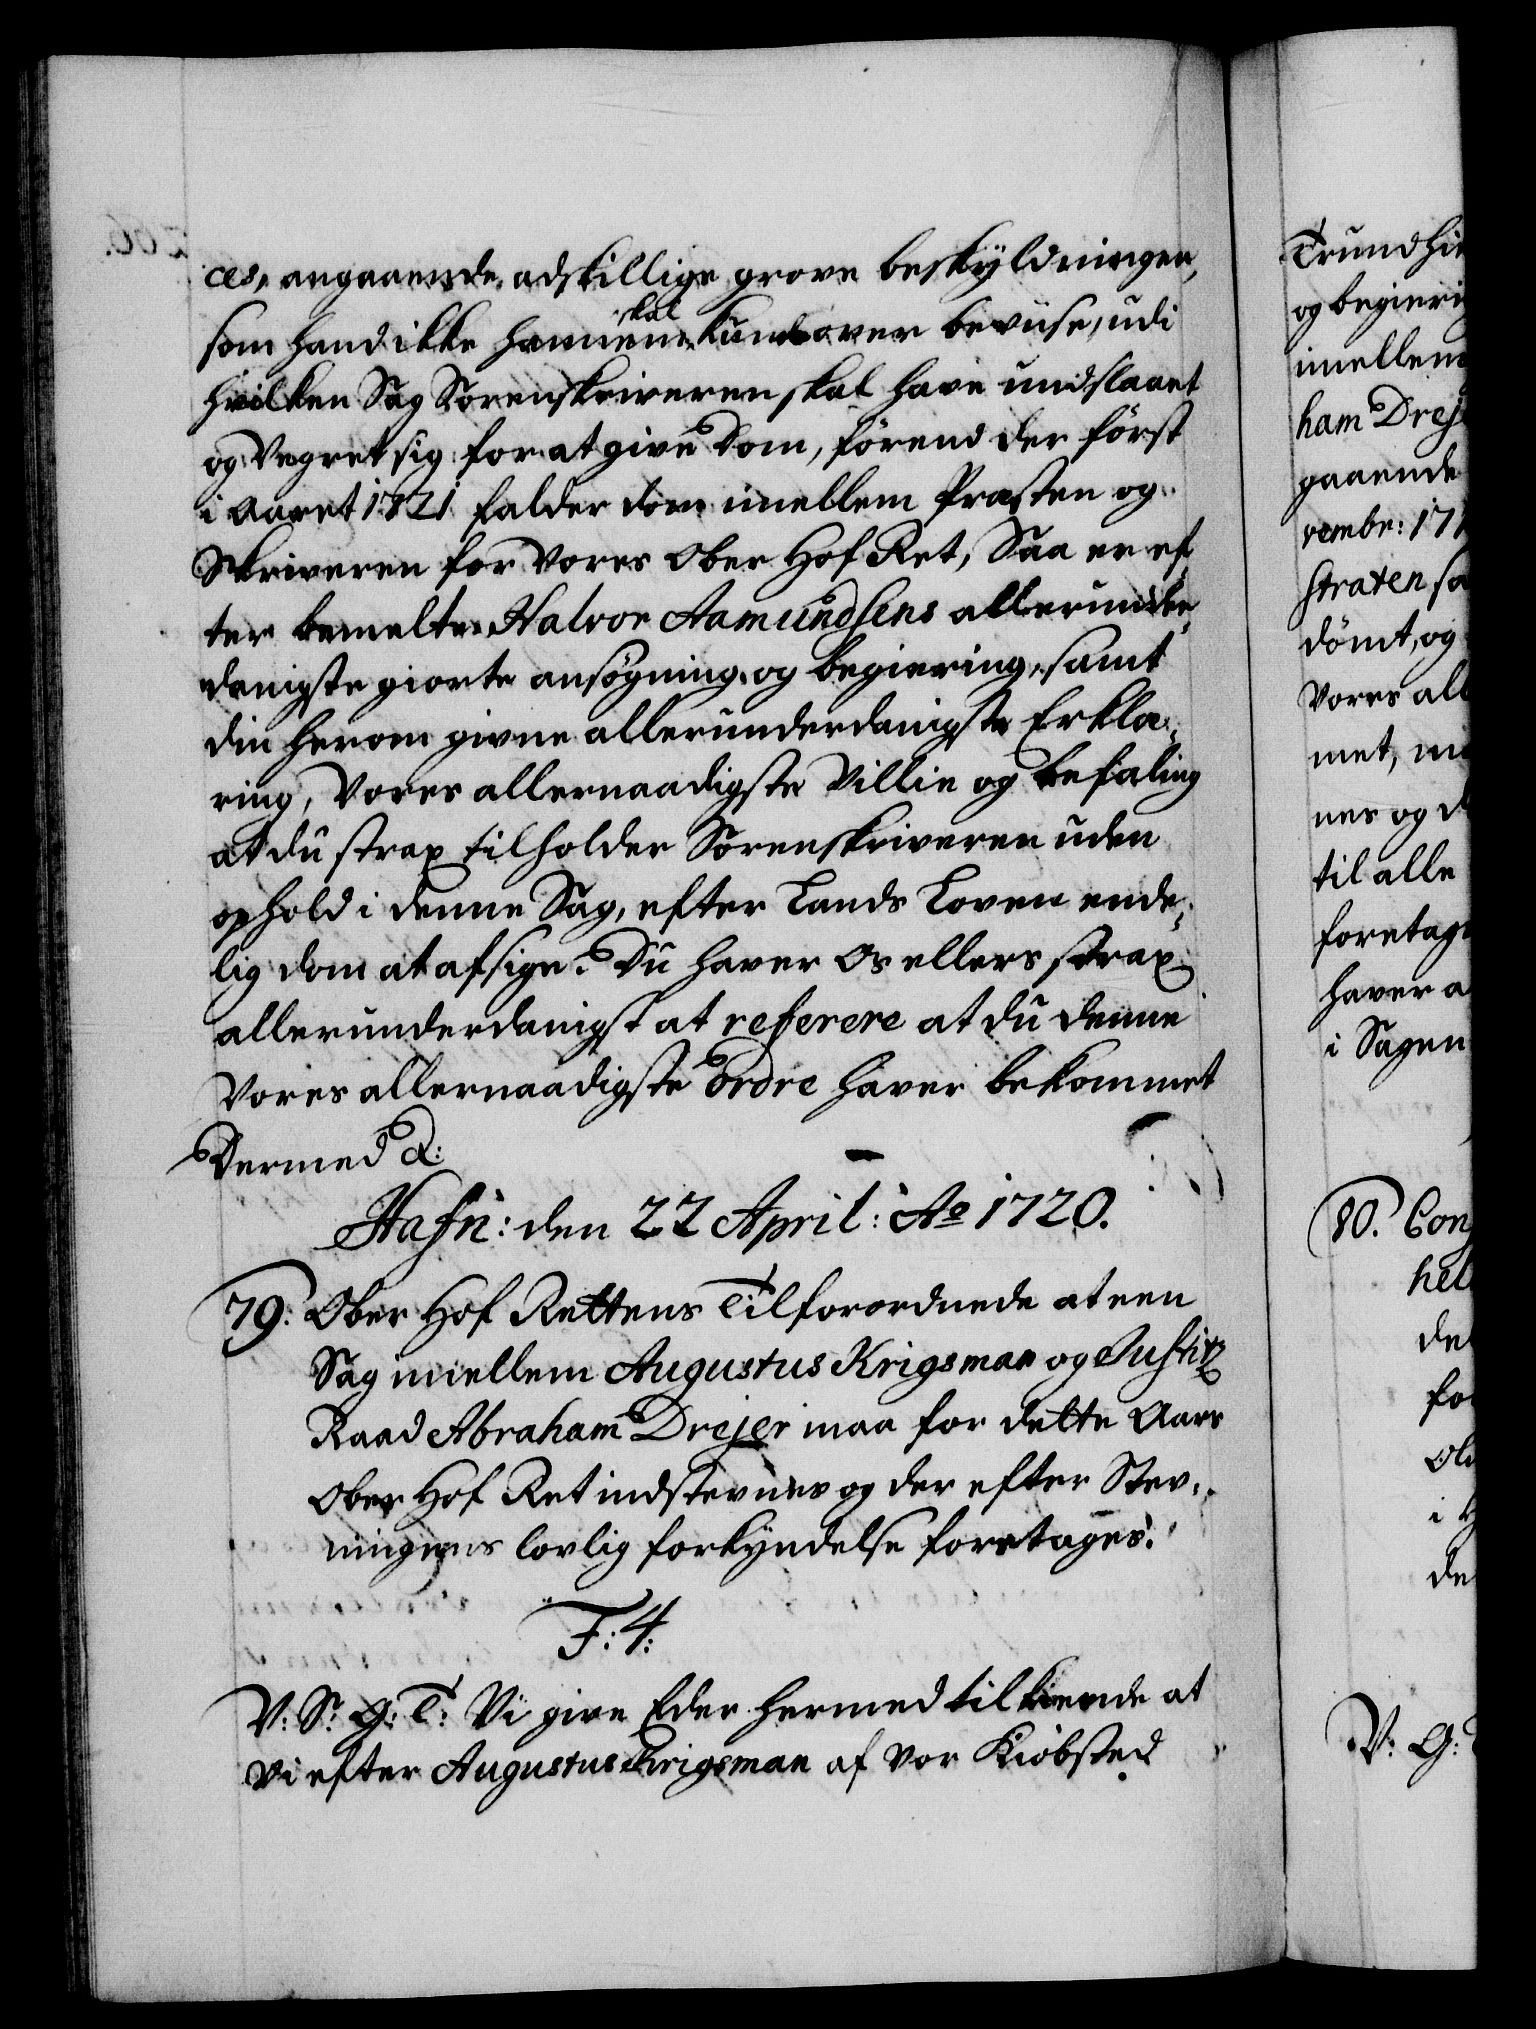 ces, angaaende adskillige grove beskÿldninger,
som hand ikke hannem skal kunde over beviise, udi
hvilken Sag Sorenskriveren skal have undslaaet
og Vegret sig for at give dom, förend der först
i Aaret 1721 falder dom imellem Præsten og
Skriveren for Vores Ober Hof Ret, Saa er ef
ter bemelte Halvor Aamundsens allerunder
danigste giorte ansögning og begiering, samt
din herom givne allerunderdanigste Erklæ¬
ring, Vores allernaadigste Villie og befaling
at du strax tilholder Sorenskriveren uden
ophold i denne Sag, efter Lands Loven ende¬
lig dom at afsige. Du haver Os ellers strax
allerunderdanigst at referere at du denne
Vores allernaadigste ordre haver bekommet
Dermed &:
Hafn: den 22 April: Ao 1720.
79: Ober Hof Rettens Tilforordnede at een
Sag imellem Augustus Krigsman og Justitz
Raad Abraham Drejer maa for dette Aars
Ober Hof Ret indstevnes og der efter Stev¬
ningens lovlig forkyndelse foretages.
F: 4:
V: S: G: T: Vi give Eder hermed tilkiende at
Vi efter Augustus Krigsman af Vor Kiöbsted
Trundhi
og begieri
imellem
ham Drej
gaaende
vembr: 17
straten sa
dömt, og
Vores all
met, m
nes og d
til alle
foretag
haver a
i Sagen
80. Con
hel
de
fo
i
de
V: G: